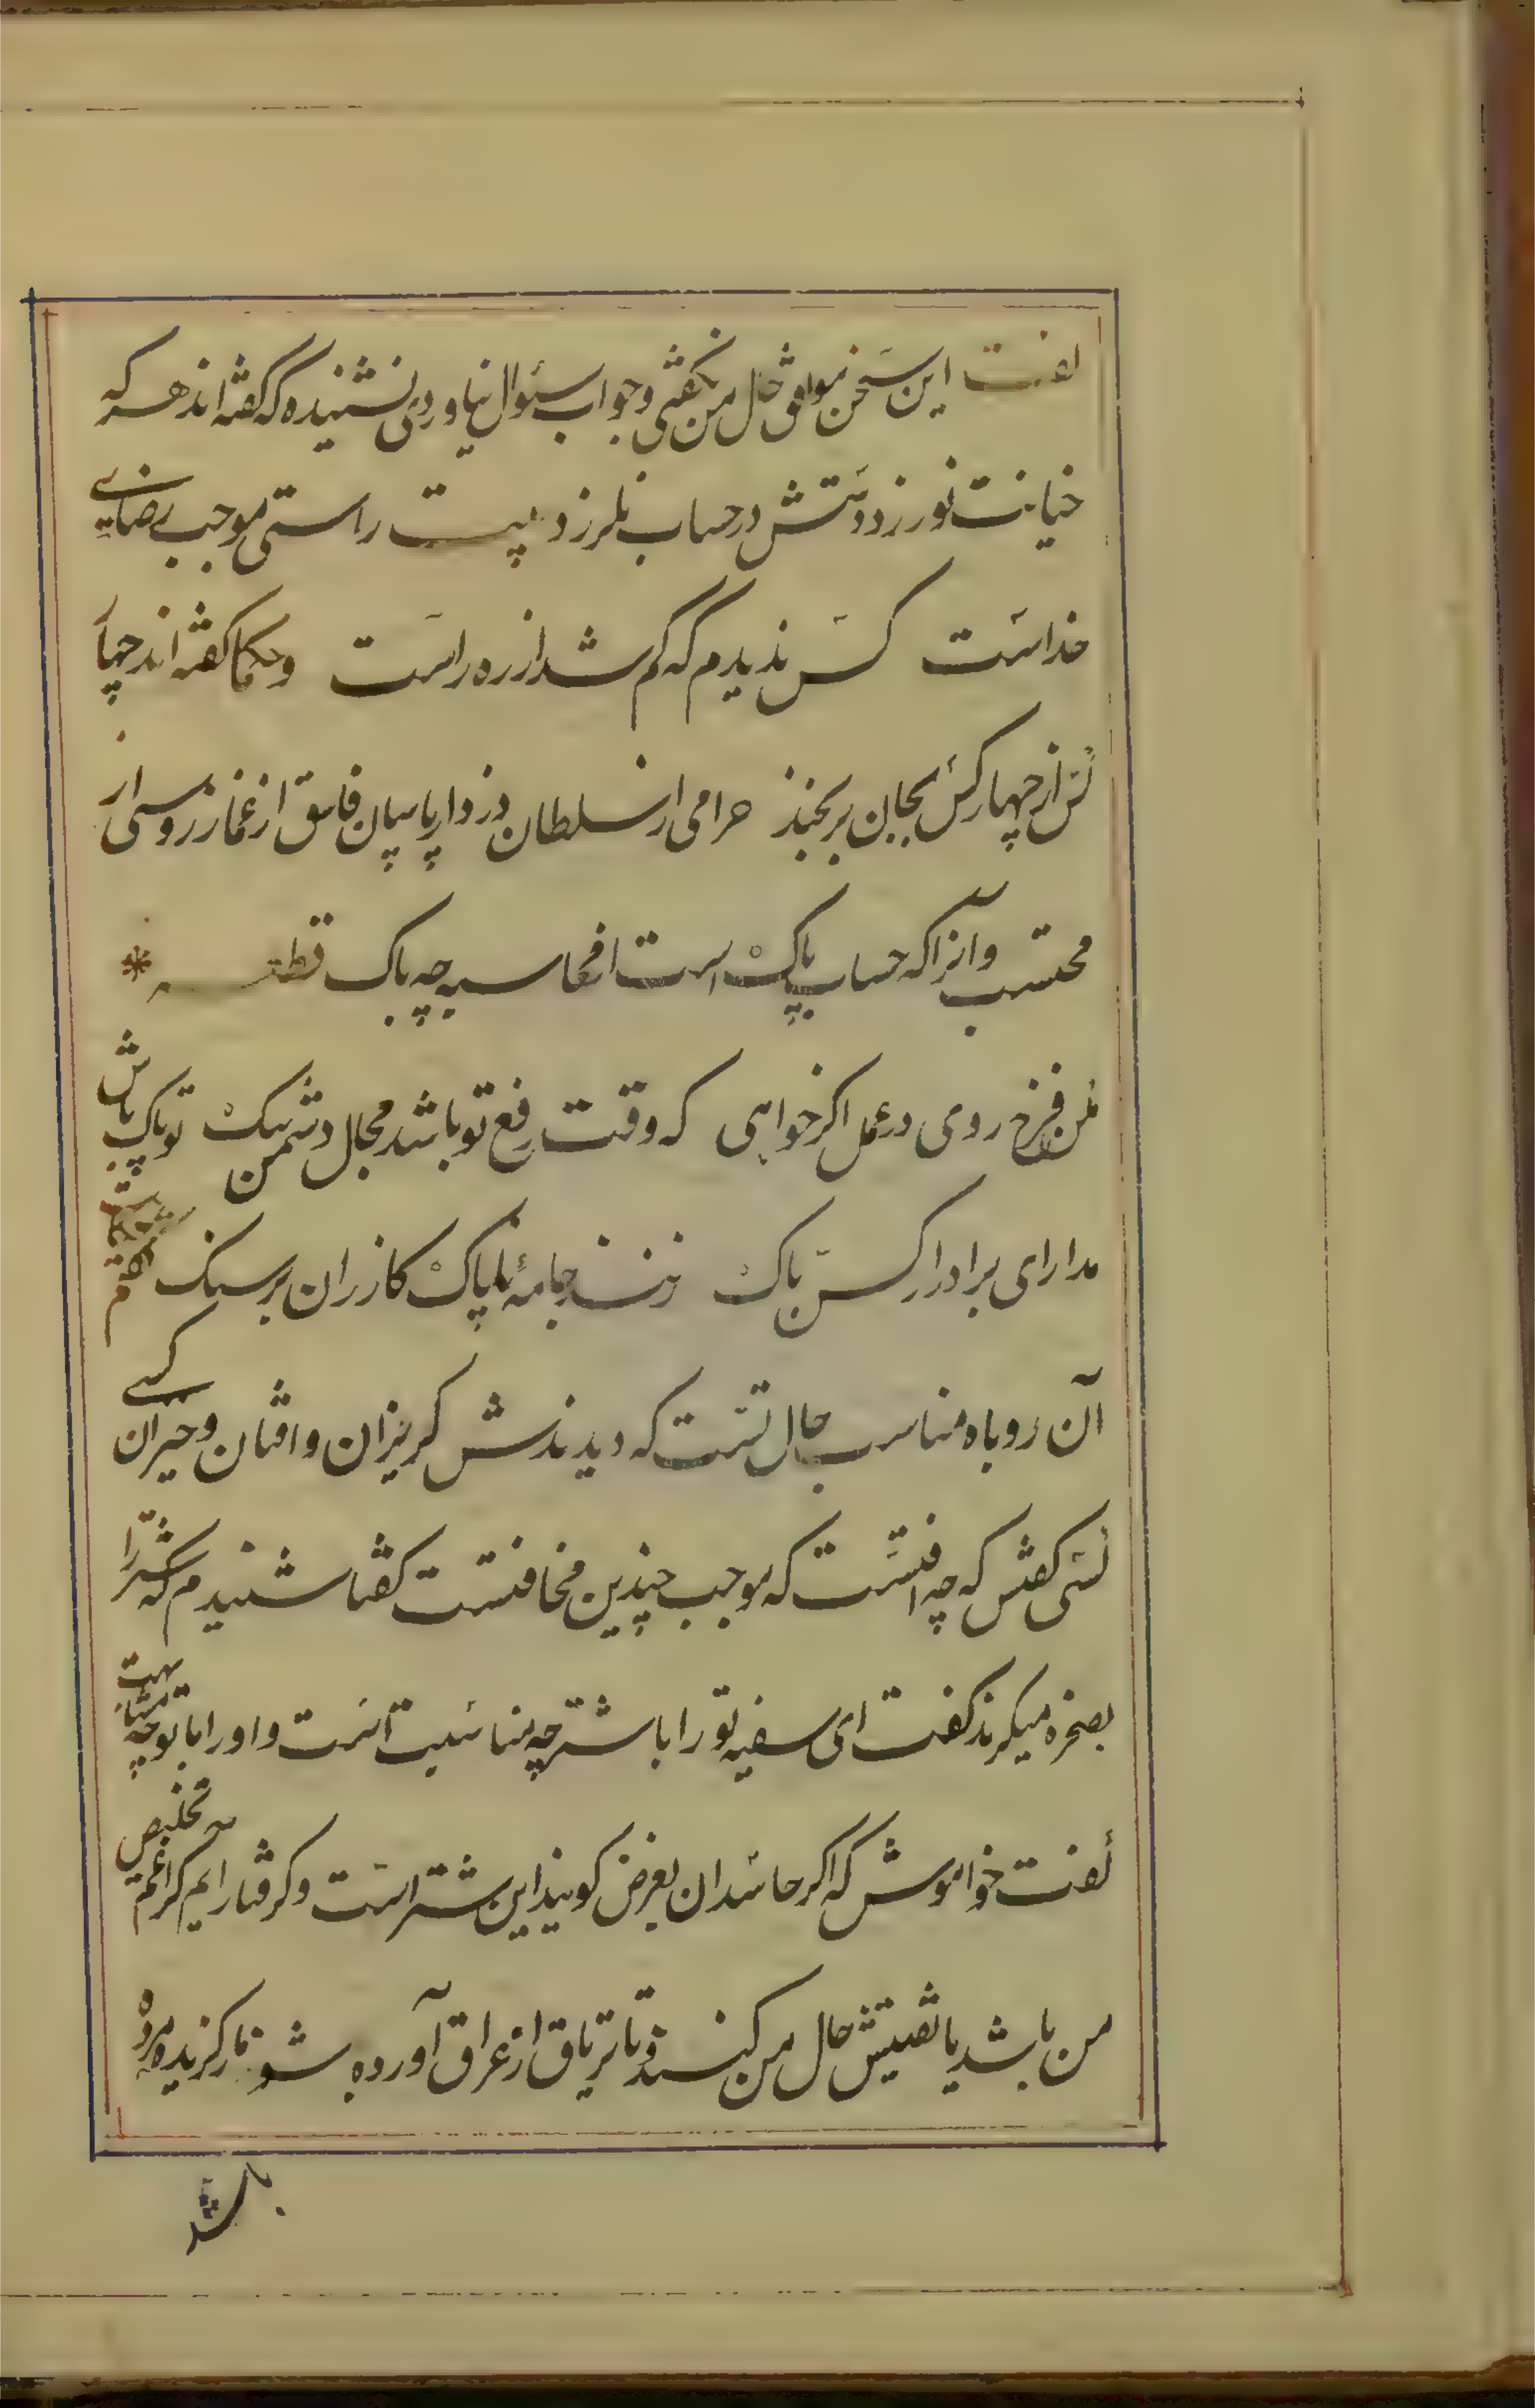 گفت این سخن موافق حال من نگفتی و جواب سئوال نیاوردی نشنیده که گفته اند هر که
خیانت نورزد دستش در حساب نلرزد بیت راستی موجب رضای
خداست کس ندیدم که گم شد از ره راست و حکما گفته اند چهار
کس از چهار کس بجان برنجند حرامی از سلطان دزد از پاسبان فاسق از غماز روسپی از
محتسب و آنرا که حساب پاک است از محاسبه چه باک قطعه
مکن فرخ روی در عمل اگر خواهی که وقت رفع تو باشد مجال دشمن تنگ تو پاک باش
مدار ای برادر از کس باک زنند جامهٔ ناپاک کازران بر سنگ گفتم
آن روباه مناسب حال تست که دیدندش گریزان و افتان و حیران کسی
گفتش که چه آفتست که موجب چندین مخافتست گفتا شنیدم که شتر را
بصخره میگیرند گفت ای سفیه تو را با شتر چه مناسبت است و او را با تو چه مشابهت
گفت خواموش که اگر حاسدان بغرض گویند این شتر است و گرفتار آیم کرا غم تخلیص
من باشد یا تفتیش حال من کنند و تا تریاق از عراق آورده شود مار گزیده مرده
باشد